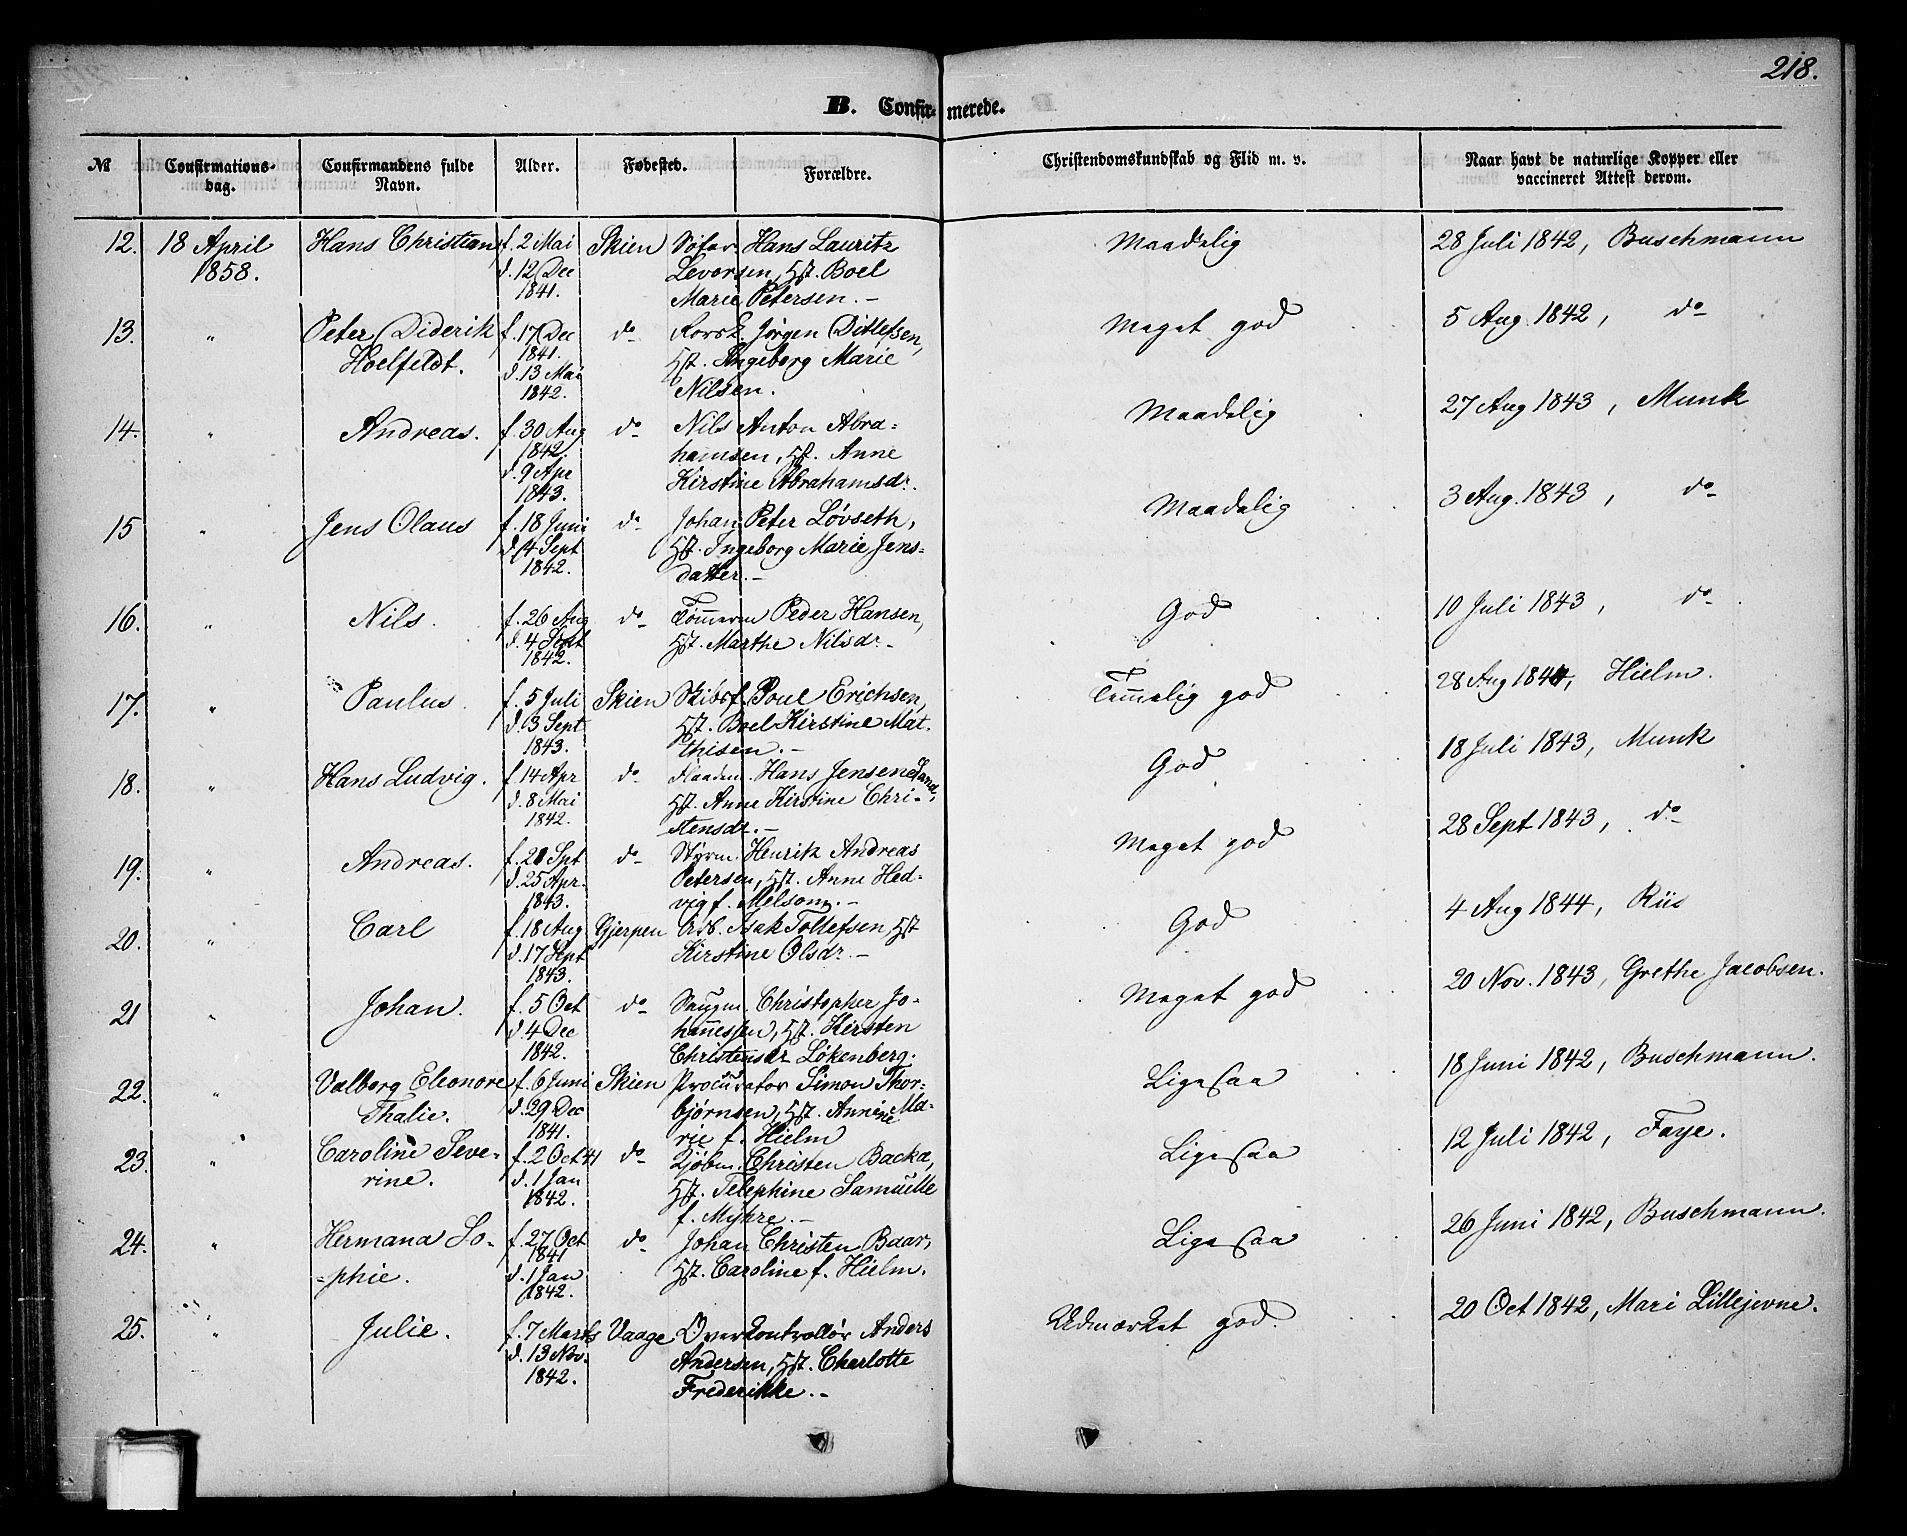 218.
B. Confirmerede.
№ Confirmations-dag. Confirmandens fulde Navn. Alder. Fødested. Forældre. Christendomskundskab og Flid m. v. Naar havt de naturlige Kopper eller vaccineret Attest derom.
12. 18 April Hans Christian f. 2 Mai Skien Hans Lauritz Maadelig 28 Juli 1842, Buschmann
1858. d. 12 Dec Levorsen, Hst. Boel
1841. Marie Petersen. –
13. " Peter Diderik f. 17 Dec do Jørgen Ditlefsen, Meget god 5 Aug 1842, do
Hoelfeldt. 1841. Hst. Ingeborg Marie
d. 13 Mai Nilsen.
1842.
14. " Andreas. f. 30 Aug do Nils Anton Abra- Maadelig 27 Aug 1843, Munk
1842. hamsen, Hst. Anne
d. 9 Apr Kirstine Abrahamsdr.
1843.
15 " Jens Olaus f. 18 Juni do Johan Peter Løvseth, Maadelig 3 Aug. 1843, do
d. 4 Sept Hst. Ingeborg Marie Jens-
1842. datter. –
16. " Nils. f. 26 Aug do Tømmerm Peder Hansen, God 10 Juli 1843, do
d. 4 Sept Hst. Marthe Nilsdr. –
1842.
17. " Paulus. f. 5 Juli Skien Skibsf. Poul Erichsen, Temmelig god 28 Aug 1844, Hielm.
d. 3 Sept Hst. Boel Kirstine Mat-
1843. thisen. –
18. " Hans Ludvig. f. 14 Apr do Hans Jensen Sand, God 18 Juli 1843, Munk
d. 8 Mai Hst. Anne Kirstine Chri-
1842. stensdr. –
19. " Andreas. f. 21 Spt do Styrm. Henrik Andreas Meget god 28 Sept 1843, do
d. 25 Apr. Petersen, Hst. Anne Hed-
1843. vig f. Melsom. –
20. " Carl f. 18 Aug Gjerpen Arb. Isak Tollefsen, Hst God 4 Aug 1844, Riis
d. 17 Sept Kirstine Olsdr. –
1843.
21 " Johan. f. 5 Oct do Saugm. Christopher Jo- Meget god 20 Nov. 1843, Grethe Jacobsen.
d. 4 Dec hannessen, Hst. Kirsten
1842. Christensdr Løkenberg.
22. " Valborg Eleonore f. 6 Juni Skien Procurator Simon Thor- Ligesaa 18 Juni 1842, Buschmann.
Thalie. d. 29 Dec bjørnsen, Hst. Annine Ma-
1841. rie f. Hielm
23. " Caroline Seve- f. 2 Oct 41 do Kjøbm. Christen Backa, Ligesaa 12 Juli 1842, Faye.
rine. d. 1 Jan Hst. Telephine Samuelle
1842. f. Myhre. –
24. " Hermana So- f. 27 Oct do Johan Christen Baar, Ligesaa 26 Juni 1842, Buschmann.
-phie. 1841 Hst. Caroline f. Hielm.
d. 1 Jan
1842.
25. " Julie. f. 7 Marts Vaage Overkontrollør Anders Udmærket god 20 Oct 1842, Mari Lillejevne.
d. 13 Nov. Andersen, Hst. Charlotte
1842. Frederikke. –